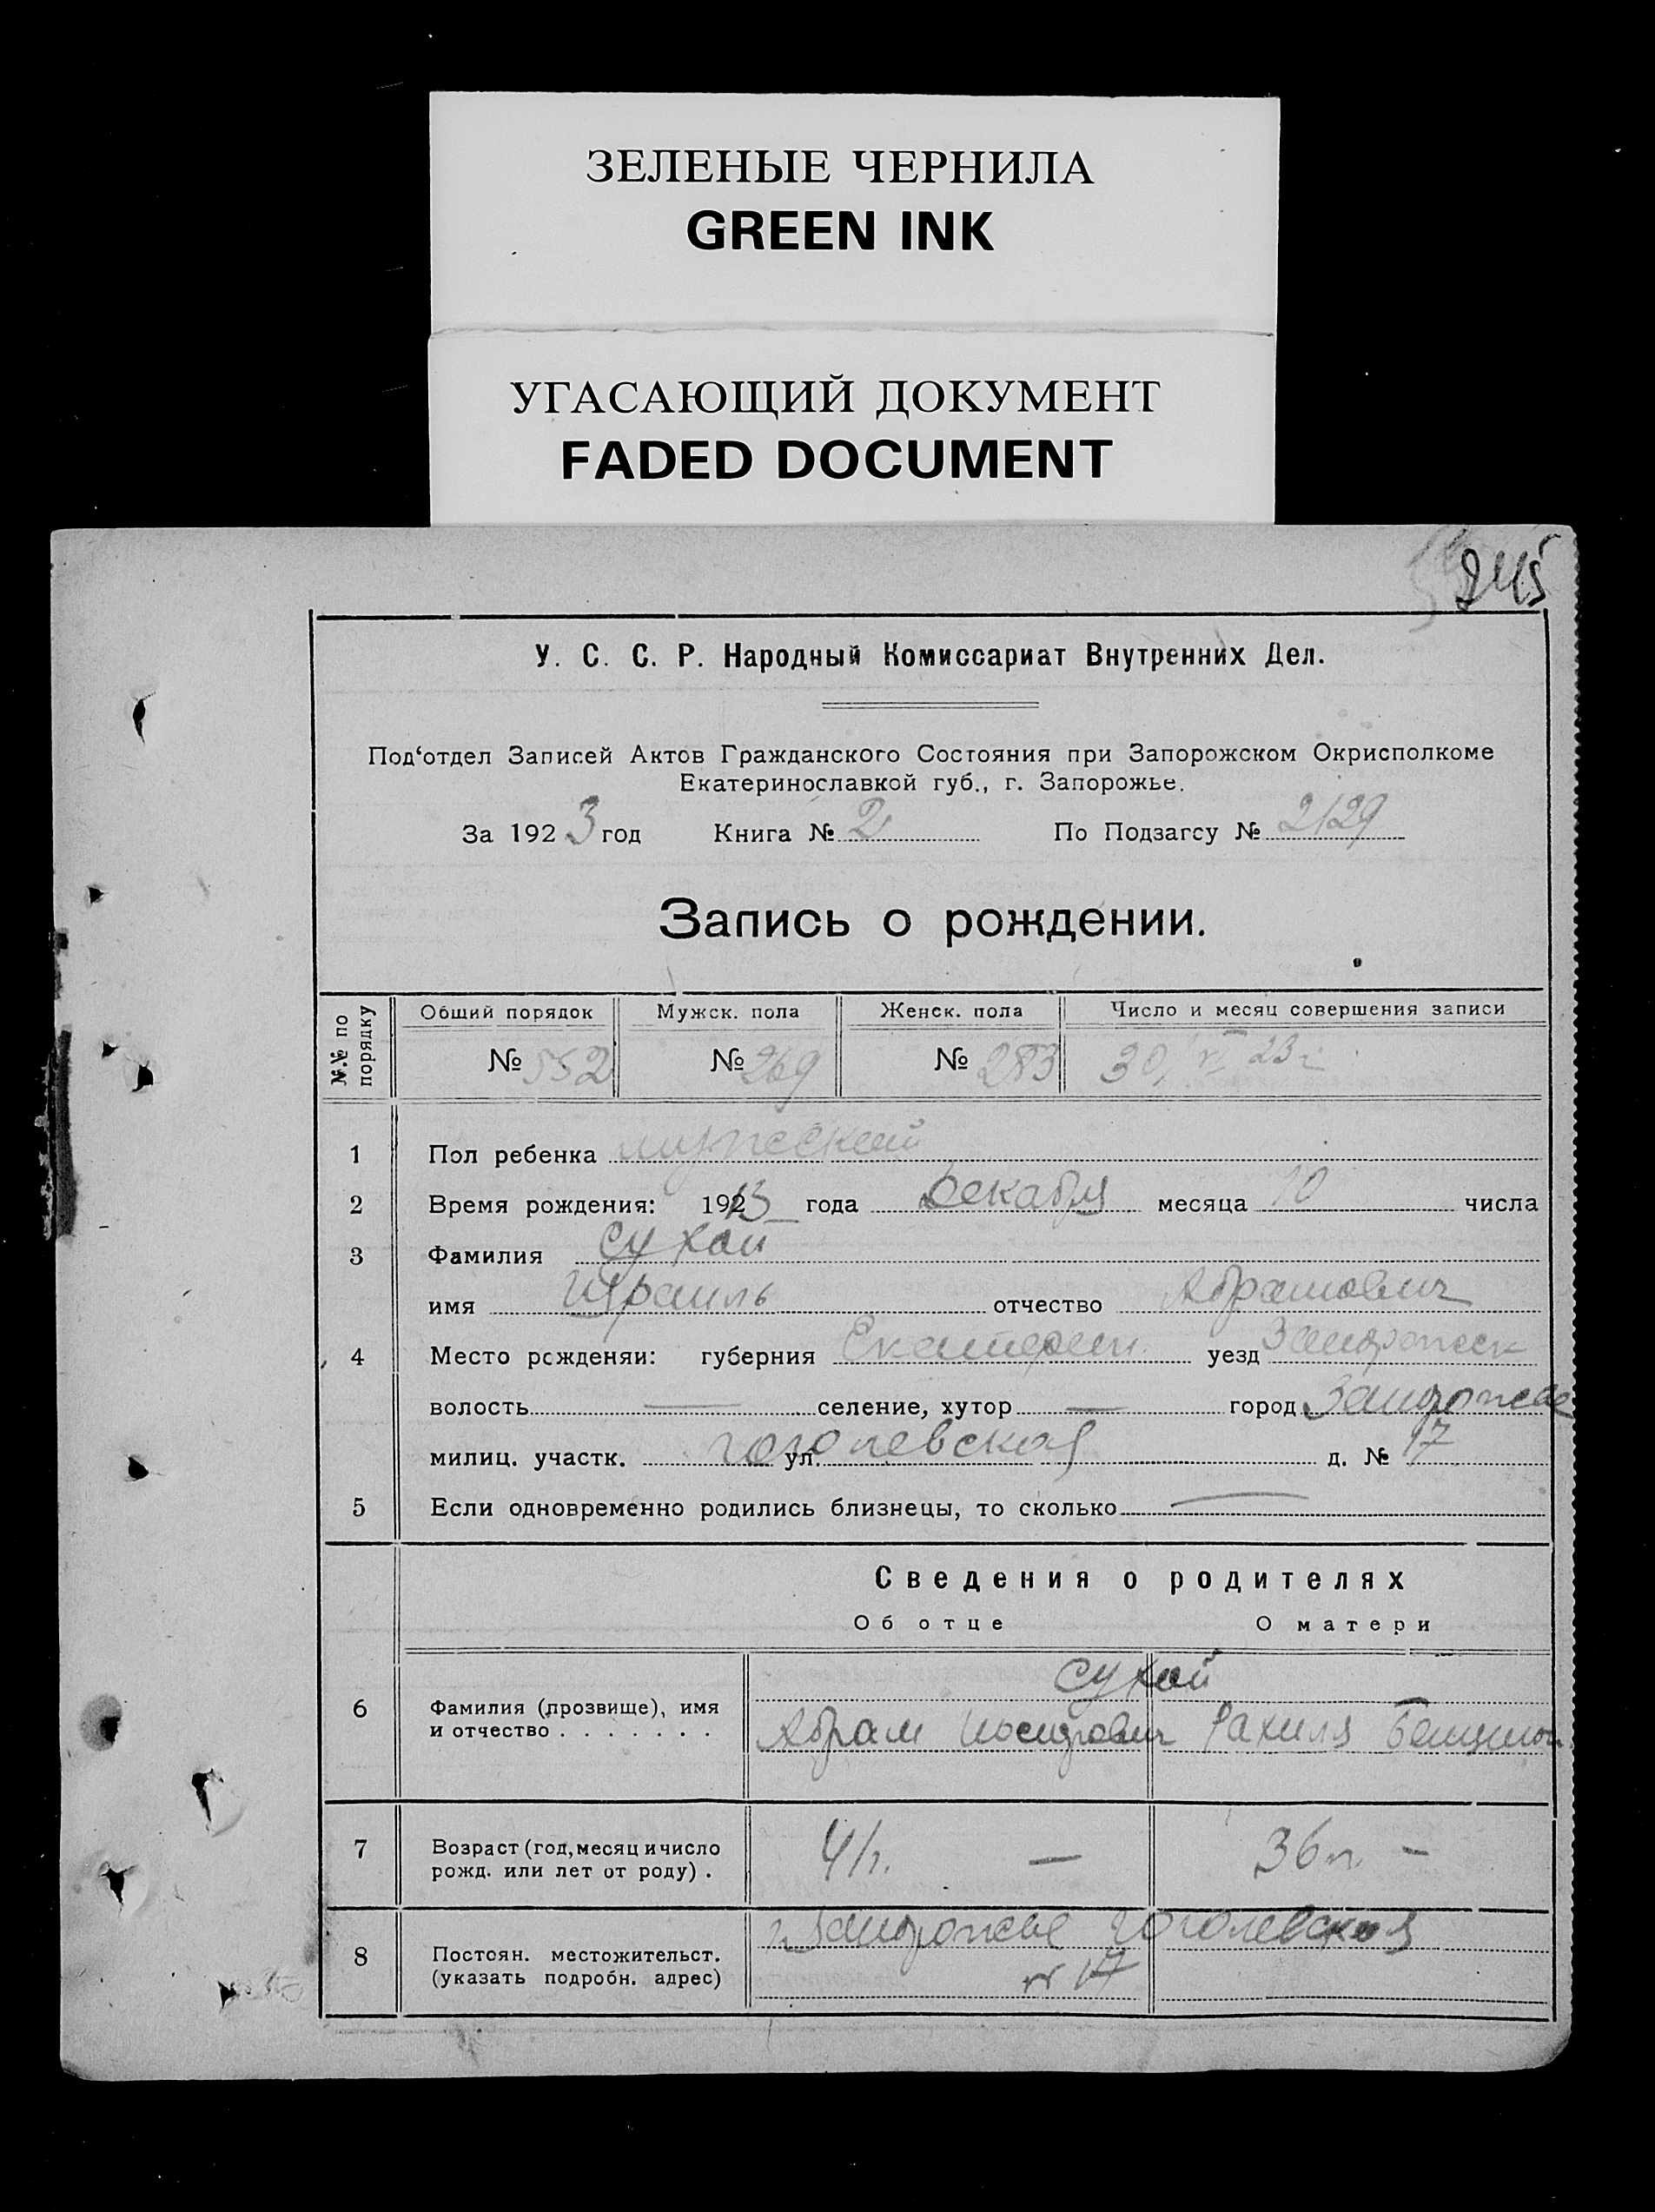 ЗЕЛЕНЫЕ ЧЕРНИЛА
GREEN INK
УГАСАЮЩИЙ ДОКУМЕНТ
FADED DOCUMENT
245
У. С. С. Р. Народный Комиссариат Внутренних Дел.
Под‘отдел Записей Актов Гражданского Состояния при Запорожском Окрисполкоме
Екатеринославкой губ., г. Запорожье.
За 1923 год Книга № 2 По Подзагсу № 2129
Запись о рождении.
№.№ по порядку Общий порядок Мужск. пола Женск. пола Число и месяц совершения записи
№ 552 № 269 № 283 30 23 г
1 Пол ребенка мужской
2 Время рождения: 1913 года Декабря месяца 10 числа
3 Фамилия Сухой
имя Израиль отчество Абрамович
4 Место рсжденяи: губерния Екатерин. уезд Запорожск
волость — селение, хутор — город Запорожье
милиц. участк. ул. Гоголевская д. № 17
5 Если одновременно родились близнецы, то сколько —
Сведения о родителях
Об отце О матери
Сухой
6 Фамилия (прозвище), имя
и отчество . . . . . . . Абрам Иосифович Рахиля
7 Возраст (год, месяц и число
рожд. или лет от роду) . 41 л. — 36 л. —
8 Постоян. местожительст.
(указать подробн. адрес) г. Запорожье Гоголевская
№ 17